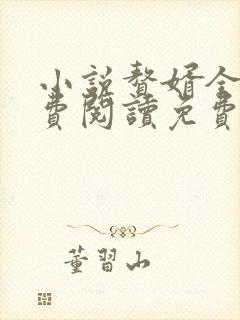 小説贅婿全
費閱讀免費
董習山